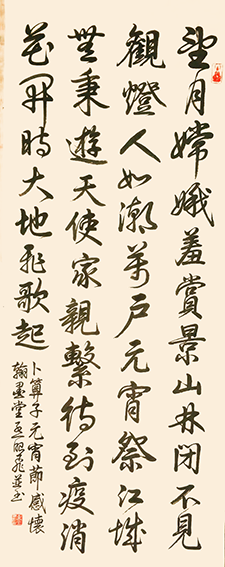 望月嫦娥羞賞景山林閉不見
觀燈人如潮萬戶元宵祭江城
無秉遊天使家親繫待到疫消
花開時大地飛歌起
卜算子元宵節感懷
翰墨堂